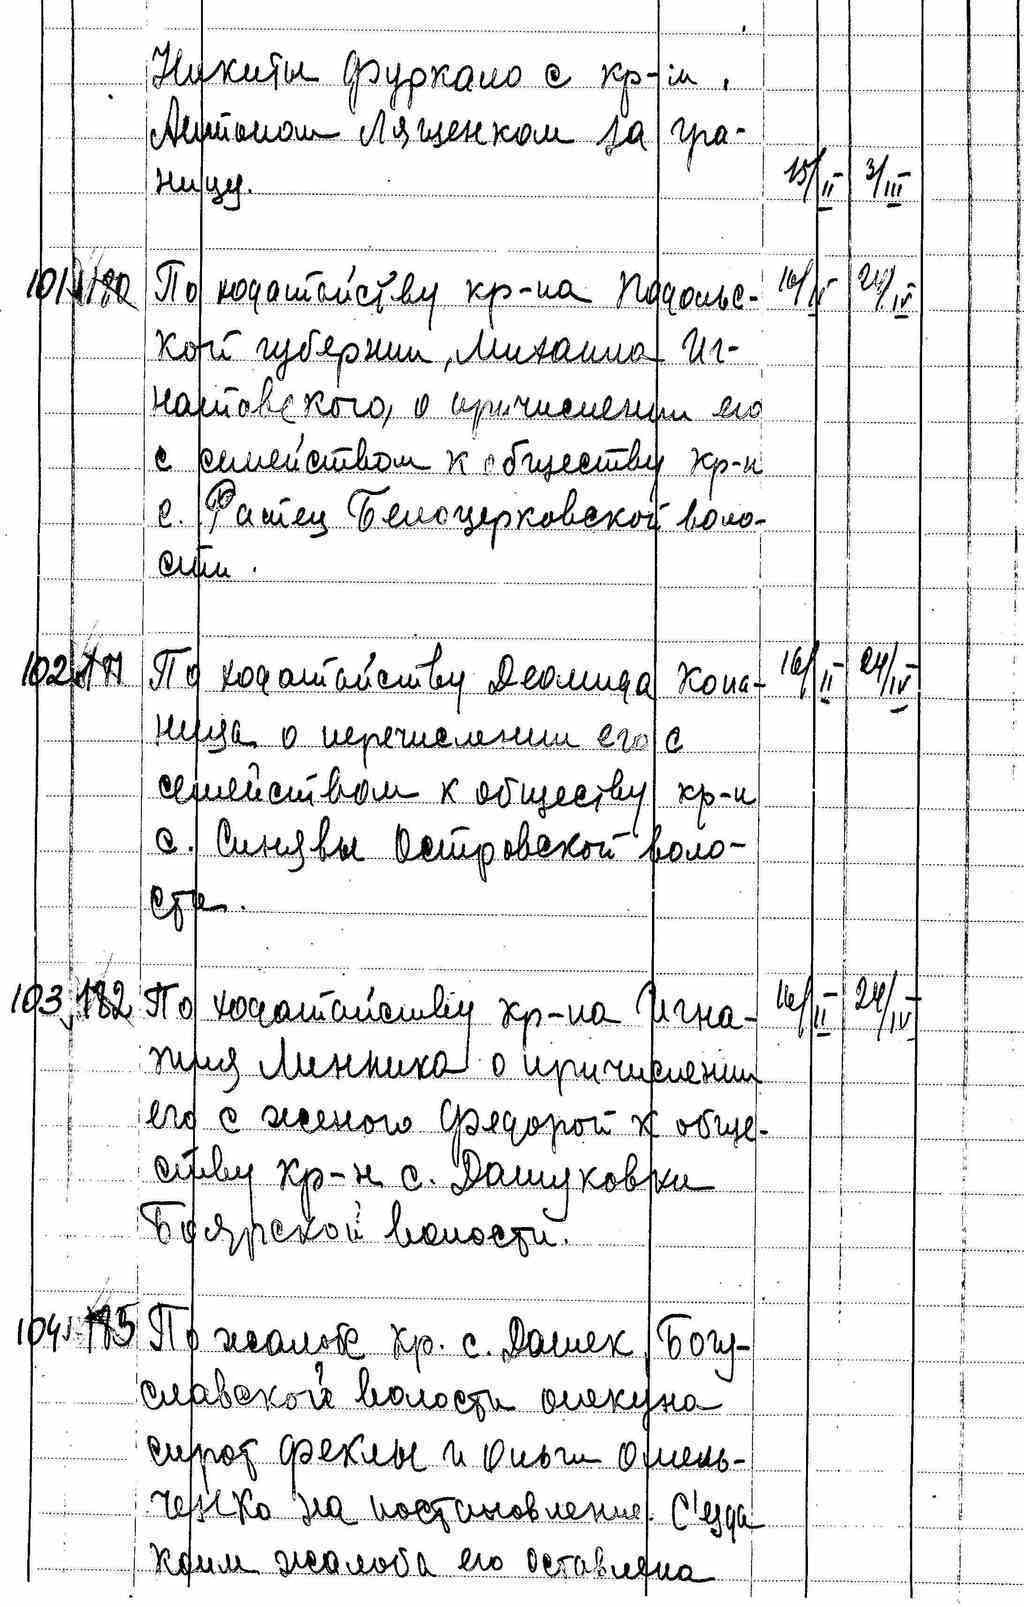 Никиты Фуркало с кр-м
Антоном Лященком за гра-
ницу. 15/II 3/III
101 180 По ходатайству кр-на Подольс- 16/IV 24/IV
кой губернии, Михаила Иг-
натовского, о причислении его
с семейством к обществу кр-н
с. Фастец Белоцерковской воло-
сти.
102 По ходатайству Деомида Копа- 16/II 24/IV
ница о перечислении его с
семейством к обществу кр-н
с. Синявы Островской воло-
сти.
103 182 По ходатайству кр-на Игна- 16/II 24/IV
тия Линника о причислении
его с женою Федорой к обще-
ству кр-н с. Дашуковки
Боярской волости.
104 185 По жалобе кр. с. Дашек, Богу-
славской волости опекуна
сирот Феклы и Ольги Омель-
ченко на постановление С'езда
коим жалоба его оставлена